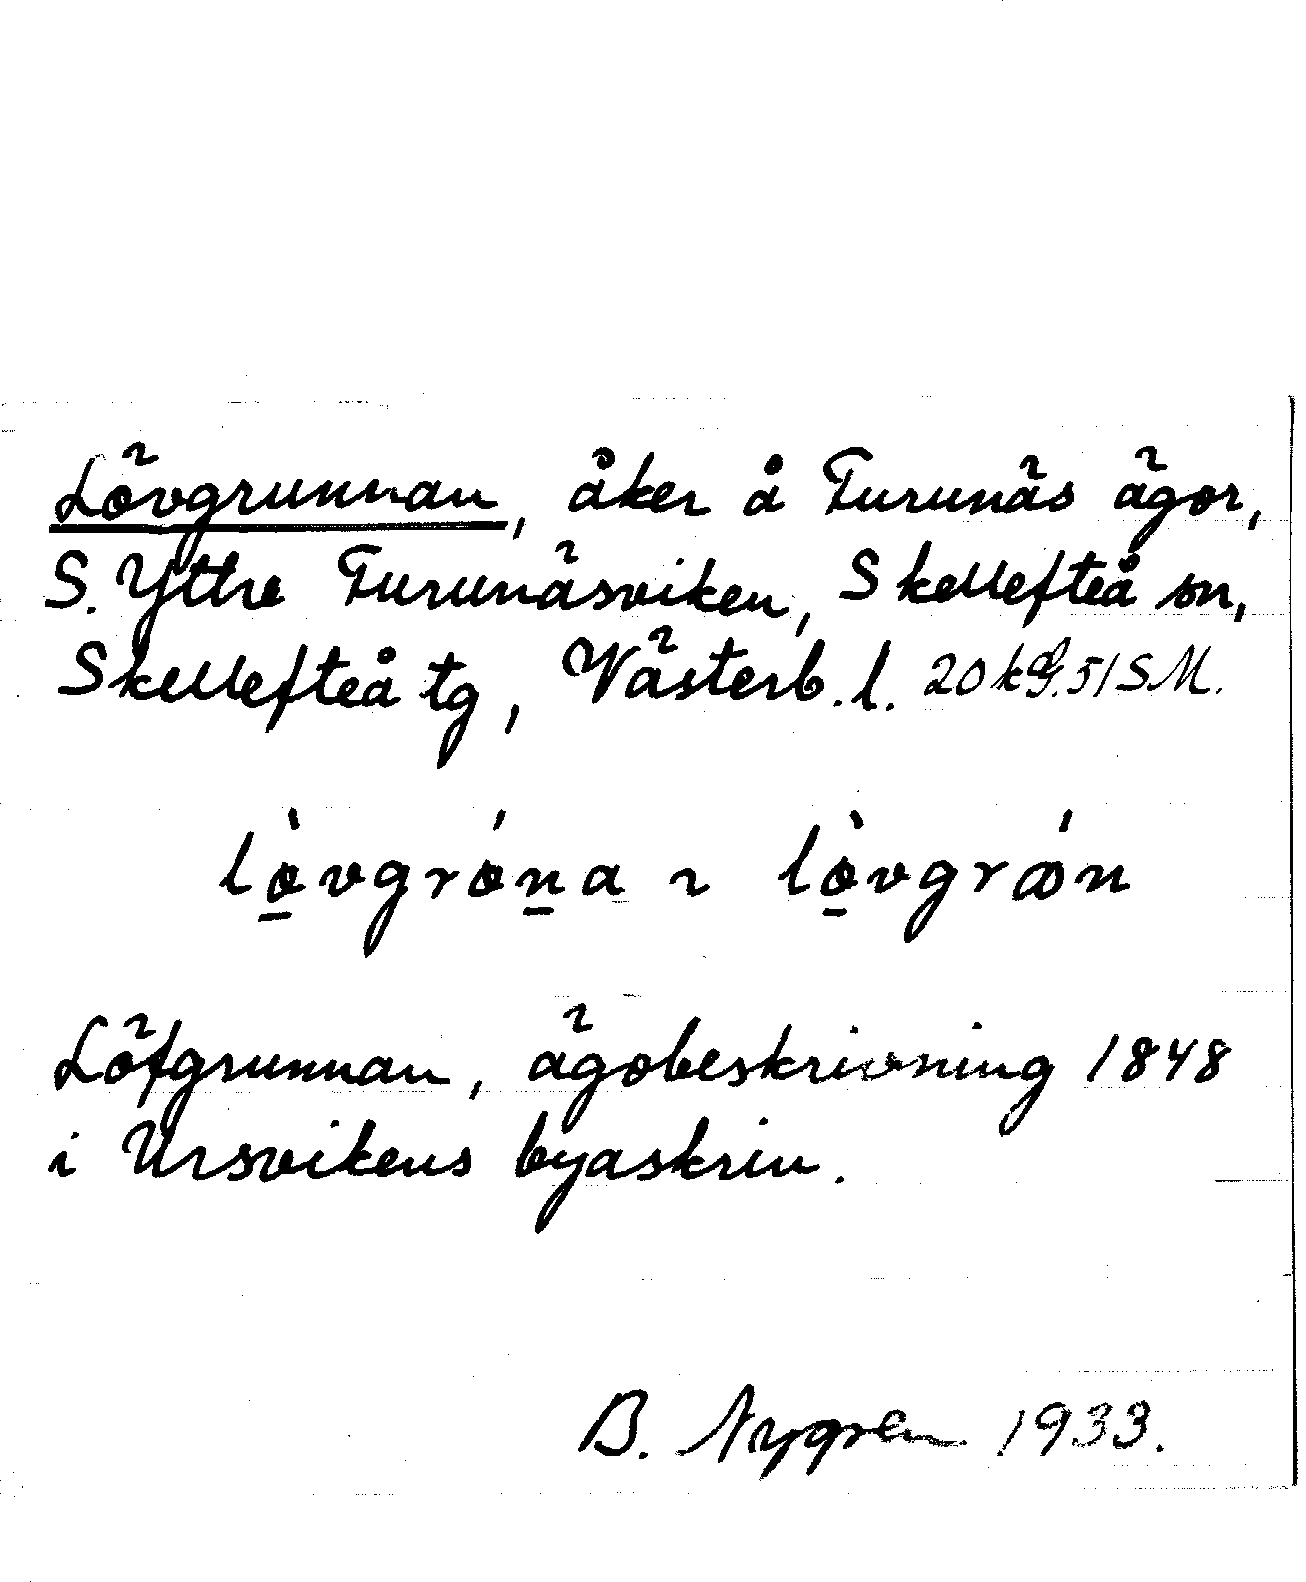 Lövgrunnan, åker å Furunäs ägor,
S. Yttre Furunäsviken, Skellefteå sn,
Skellefteå tg, Västerb. l. 20 kG. 51 SM.
lø̠̀vgrǿn̠a ~ lø̠̀vgrǿn
Löfgrunnan, ägobeskrivning 1848
i Ursvikens byaskrin.
B. Nygren 1933.